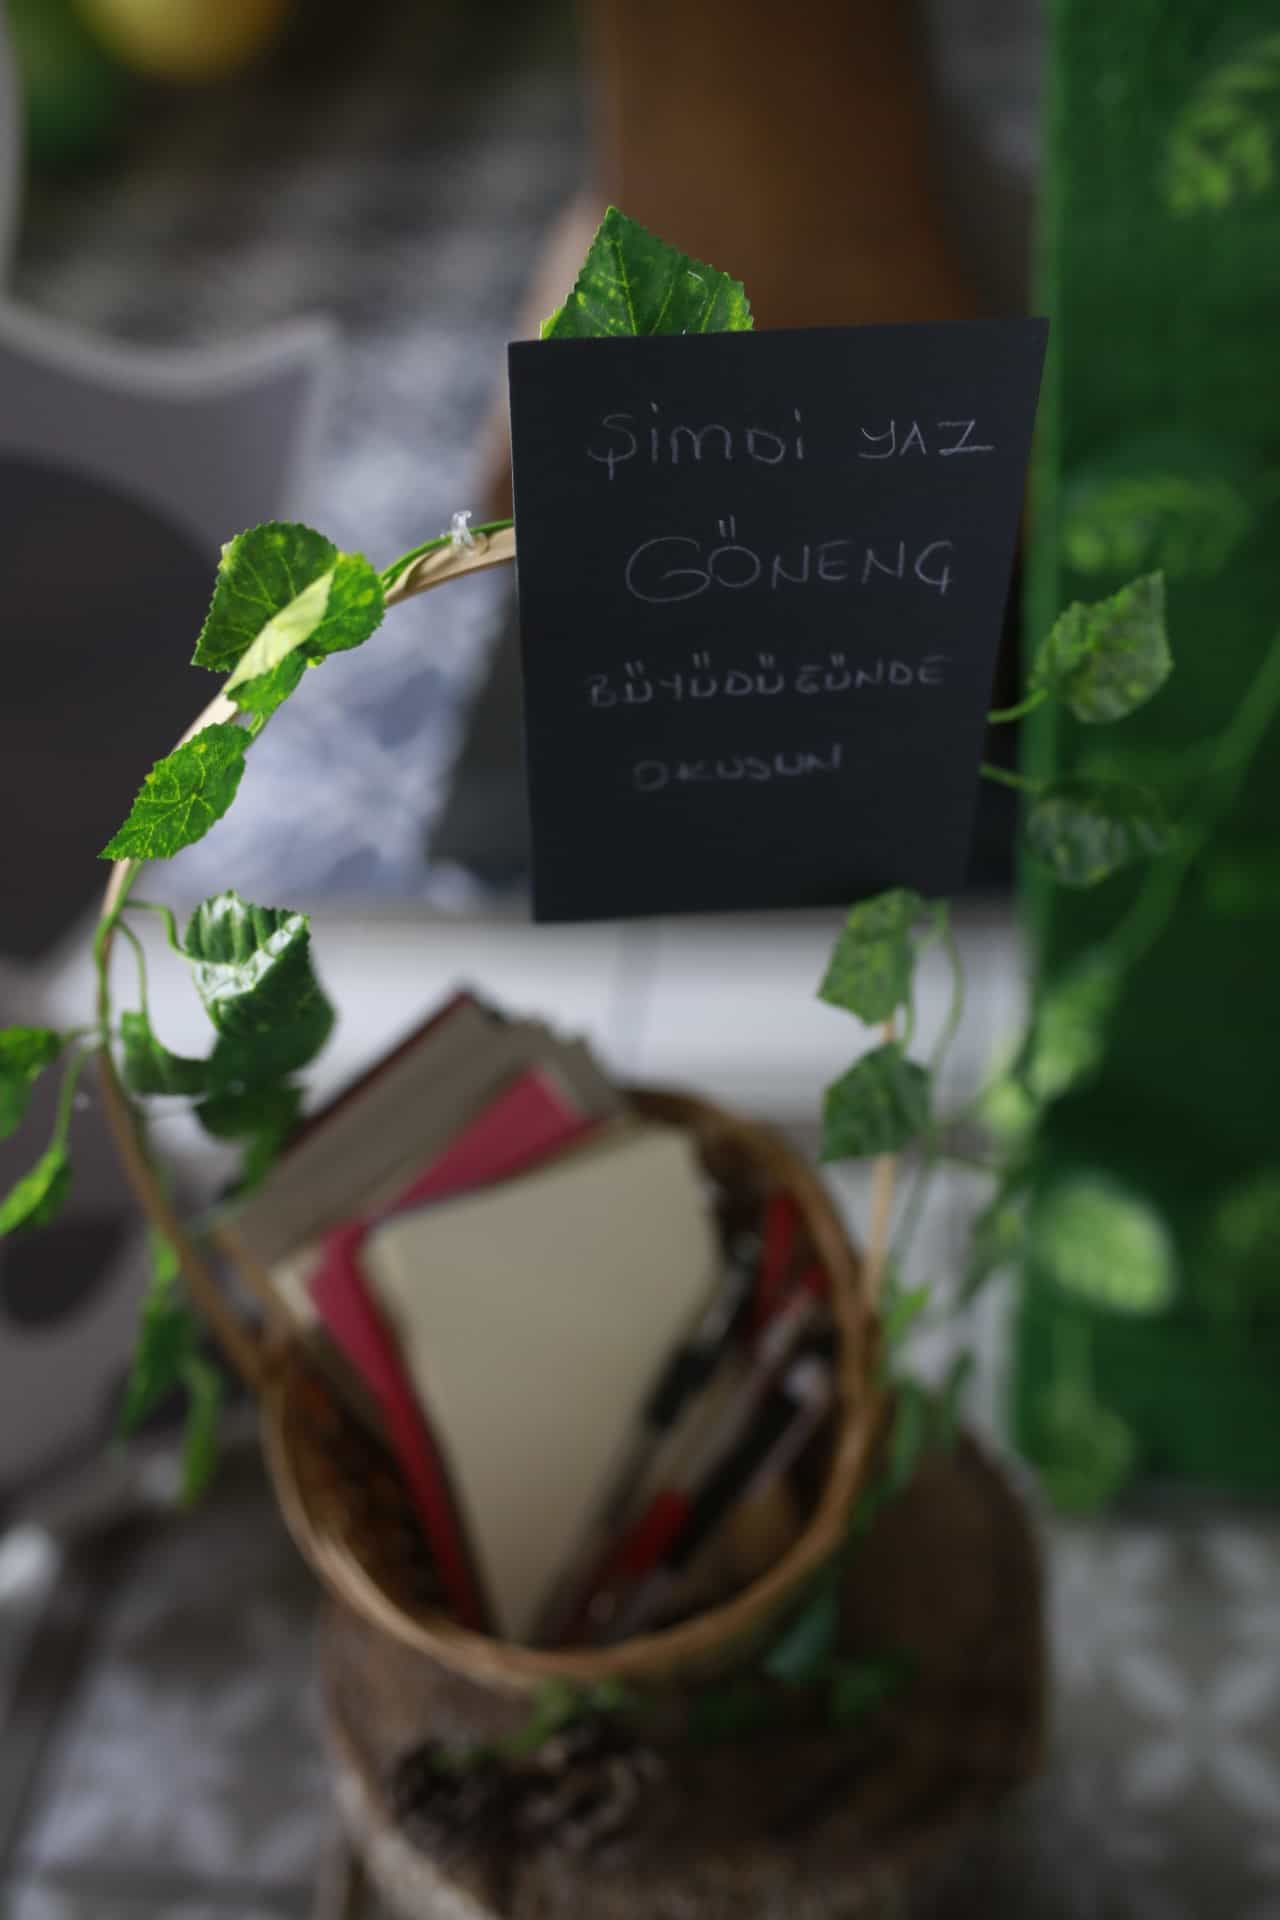 Şimdi YAZ
GÖNENÇ
BÜYÜDÜĞÜNDE
OKUSUN